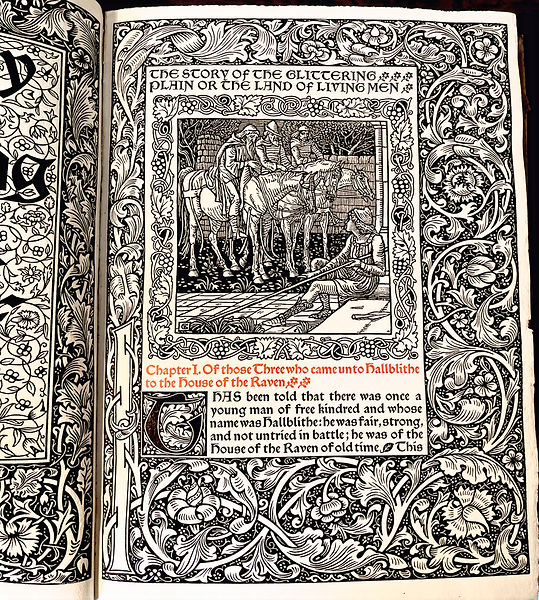 y
ng
THE STORY OF THE GLITTERING
PLAIN OR THE LAND OF LIVING MEN
Chapter I. Of those Three who came unto Hallblithe
to the House of the Raven.
IT HAS been told that there was once a
young man of free kindred and whose
name was Hallblithe: he was fair, strong,
and not untried in battle; he was of the
House of the Raven of old time. This